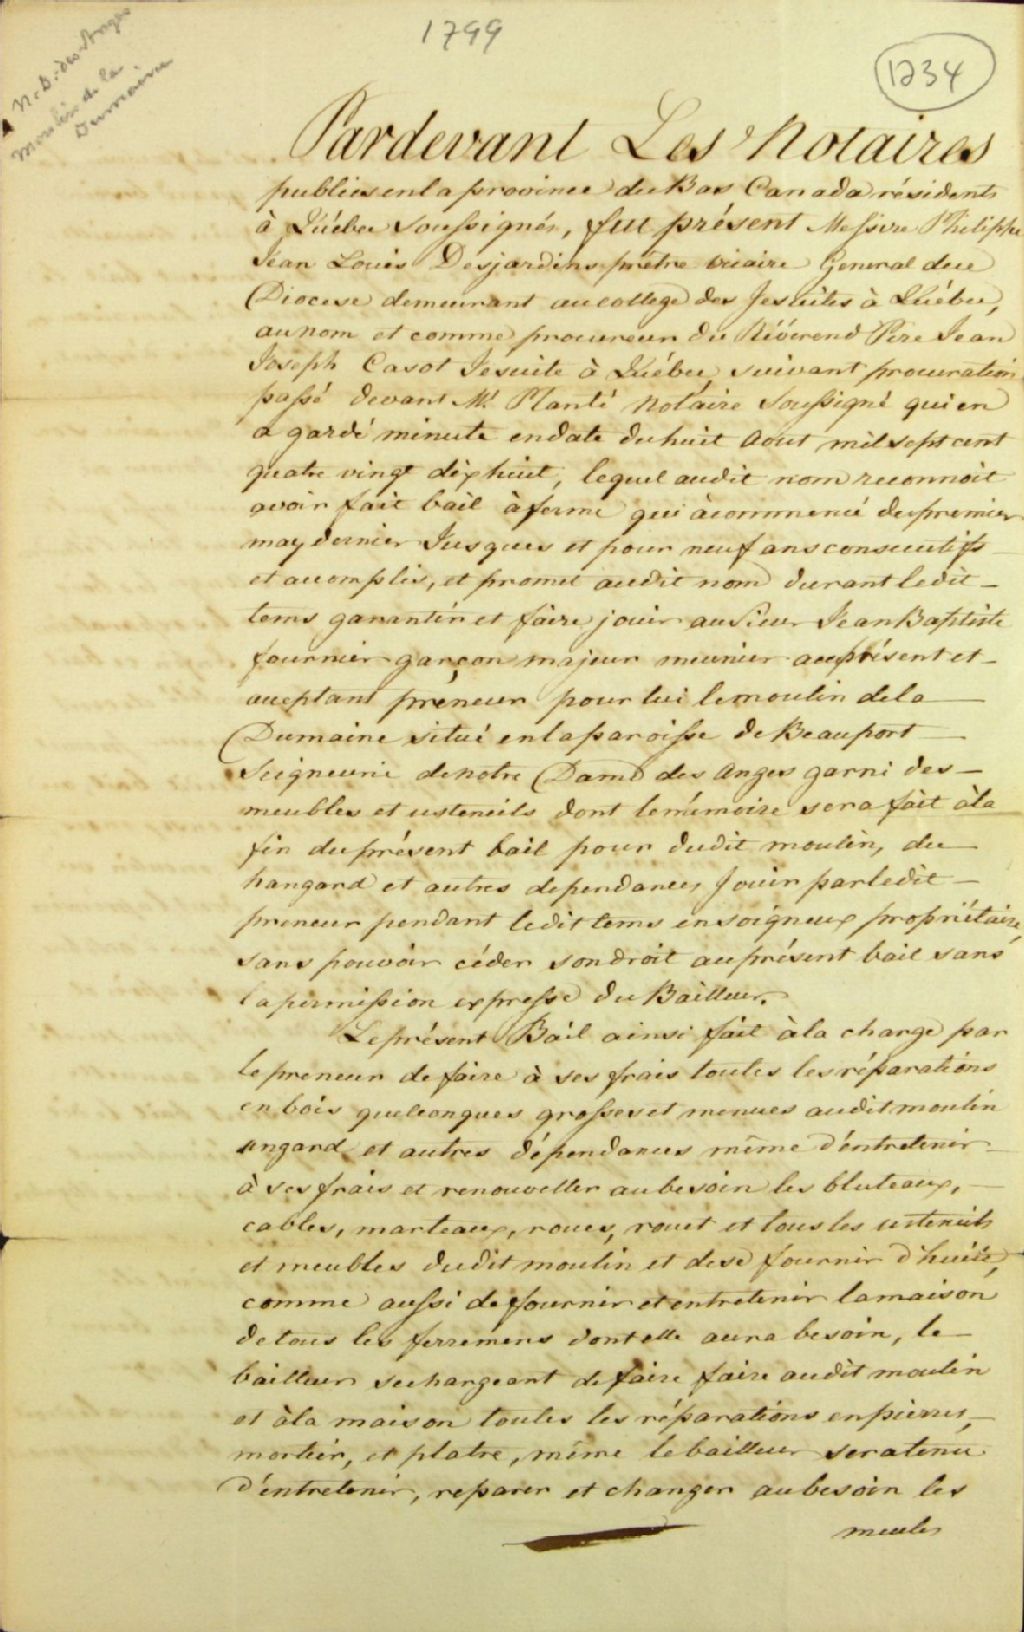 1799
1234
N. D. des Anges
Moulin de la
Dumaine
Pardevant Les Notaires
publics en la province du Bas Canada résidents
à Québec soussignés, fut présent Messire Philippe
Jean Louis Desjardins prêtre vicaire General de ce
Diocese demeurant au college des Jesuites à Québec,
au nom et comme procureur du Révérend Père Jean
Joseph Casot Jesuite à Québec, suivant procuration
passé devant Mr. Planté Notaire soussigné qui en
a gardé minute en date du huit Aout mil sept cent
quatre vingt dix huit, lequel audit nom reconnoit
avoir fait bail à ferme qui à commencé du premier
may dernier Jusques et pour neuf ans consecutifs
et accomplis, et promet audit nom durant ledit
tems garantir et faire jouir au Sieur Jean Baptiste
fournier garçon majeur meunier au présent et
acceptant préneur pour lui le moulin de la
Dumaine situé en la paroisse de Beauport
Seigneurie de Notre Dame des Anges garni des
meubles et ustencils dont le mémoire sera fait à la
fin du présent bail pour dudit moulin, du
hangard et autres dependances, Jouir par ledit
preneur pendant ledit tems en soigneux propriétaire,
sans pouvoir céder son droit au présent bail sans
la permission expresse du Bailleur.
Le présent Bail ainsi fait à la charge par
le preneur de faire à ses frais toutes les réparations
en bois quelconques grosses et menues audit moulin
angard et autres dépendances même d'entretenir
à ses frais et renouveller au besoin les bluteaux,
cables, marteaux, roues, rouet et tous les ustencils
et meubles dudit moulin et de se fournir d'huile,
comme aussi de fournir et entretenir la maison
de tous les ferremens dont elle aura besoin, le
bailleur se chargeant de faire faire audit moulin
et à la maison toutes les réparations en pierres,
mortier, et platre, même le bailleur sera tenu
d'entretenir, reparer et changer au besoin les
meules